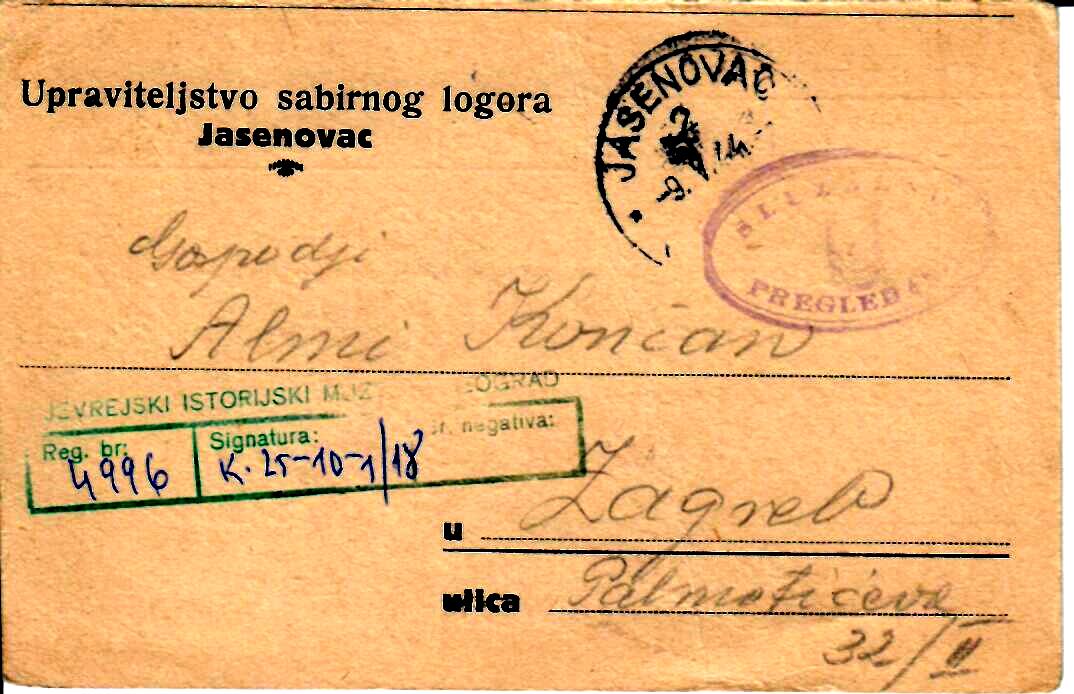 Upraviteljstvo sabirnog logora
Jasenovac
JASENOVAC
PREGLED
Gospodji
Almi Končan
JEVREJSKI ISTORIJSKI MUZ BEOGRAD
Reg. br:
4996
Signatura:
K. 25-10-1/18
br. negativa:
u Zagreb
ulica Palmotićeva
32/II